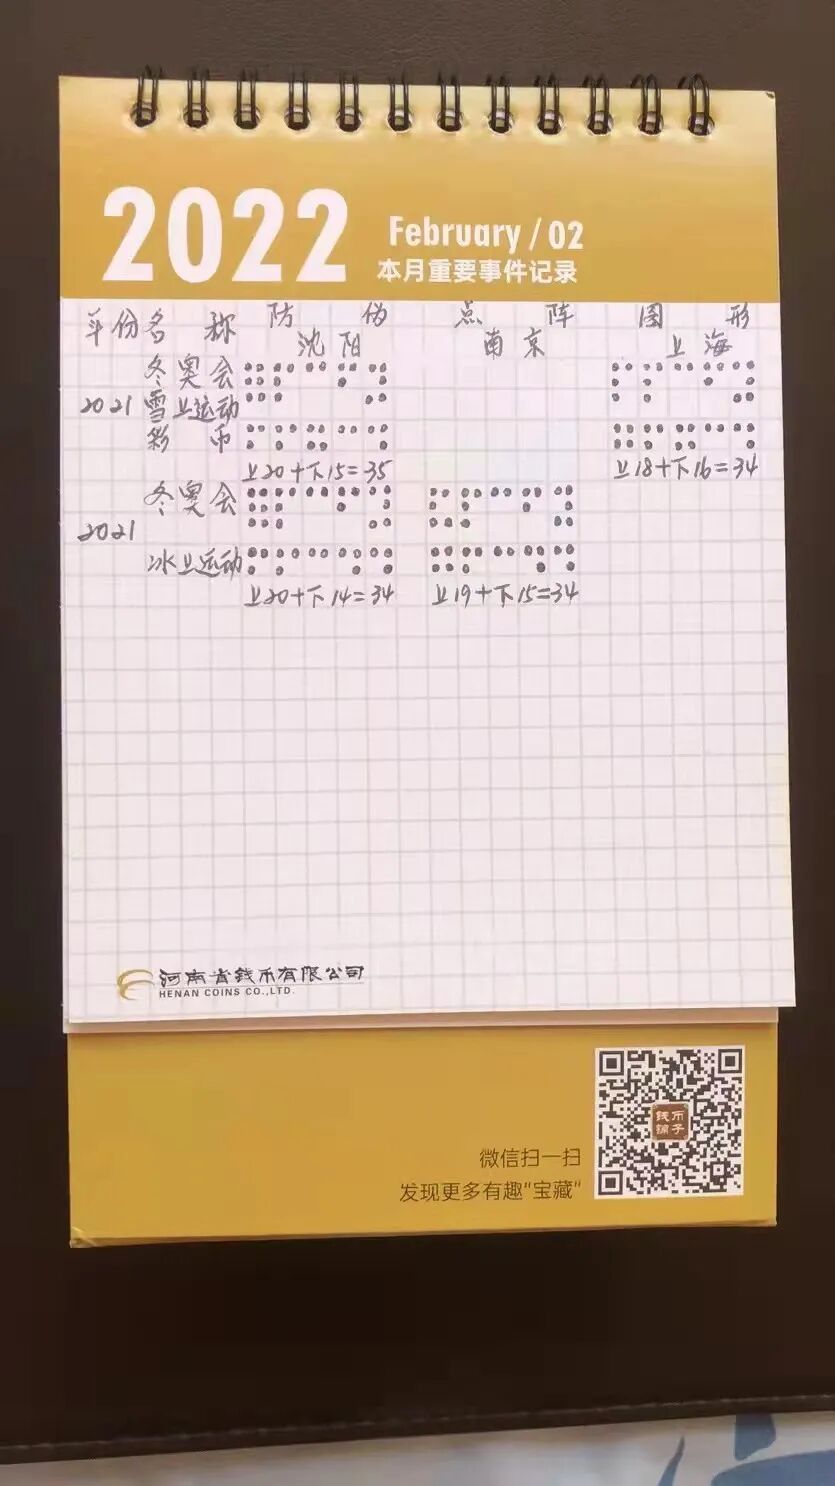 2022 February / 02
本月重要事件记录
年份 名称 防伪点阵图形
沈阳 南京 上海
冬奥会
2021 雪上运动
彩币
上20+下15=35 上18+下16=34
冬奥会
2021
冰上运动
上20+下14=34 上19+下15=34
河南省钱币有限公司
HENAN COINS CO.,LTD.
钱币
铺子
微信扫一扫
发现更多有趣“宝藏”